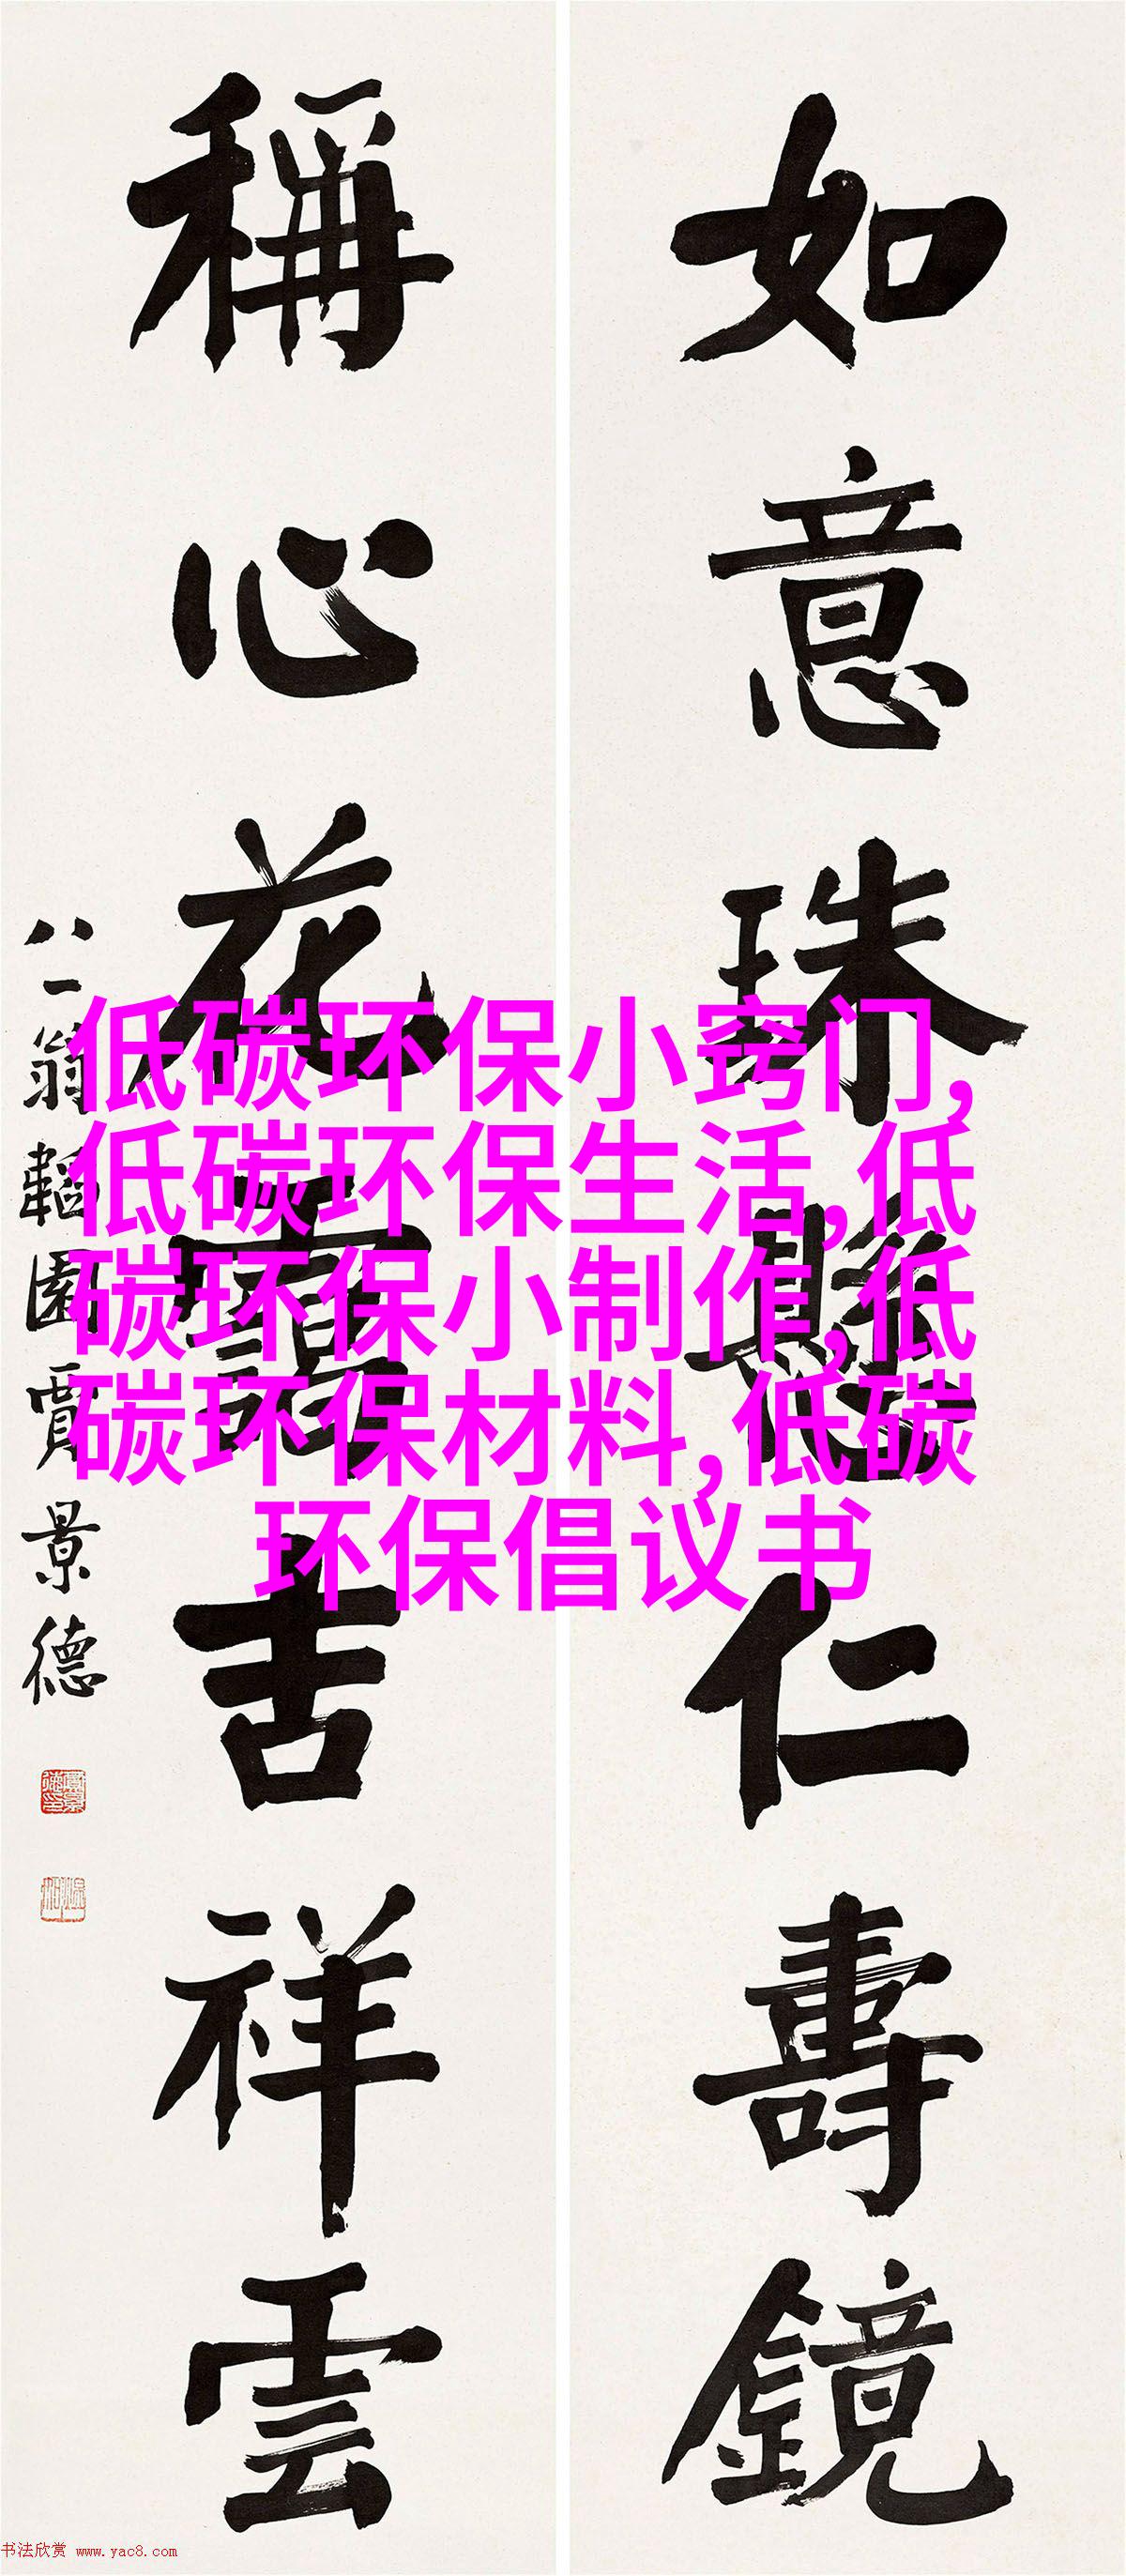 如意珠懸仁壽鏡
稱心花靄吉祥雲
八一翁韜園賈景德
低碳环保小窍门,
低碳环保生活,低
碳环保小制作,低
碳环保材料,低碳
环保倡议书
书法欣赏 www.yac8.com